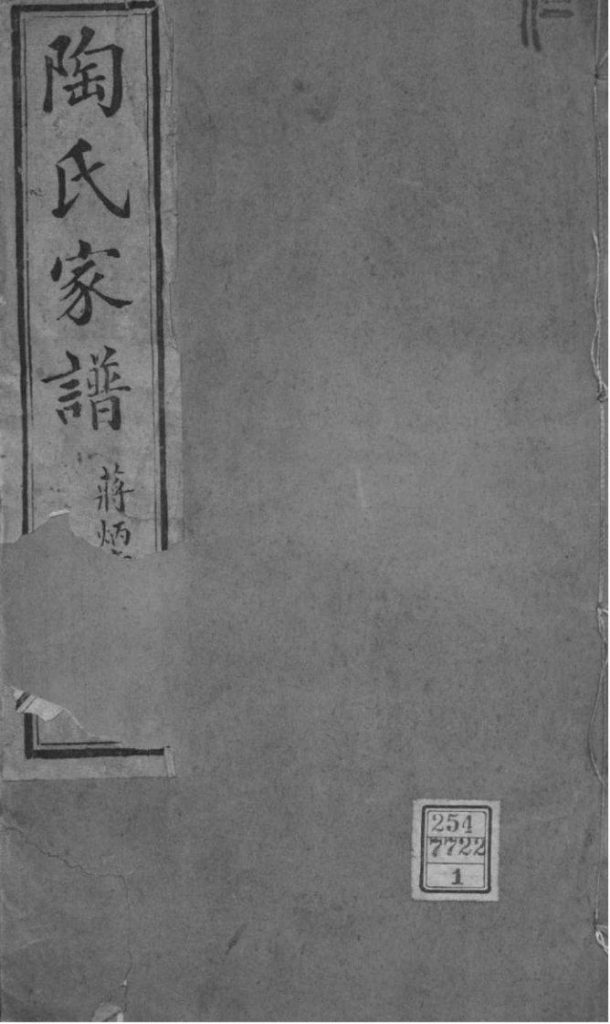 陶氏家譜
蔣炳
254
7722
1